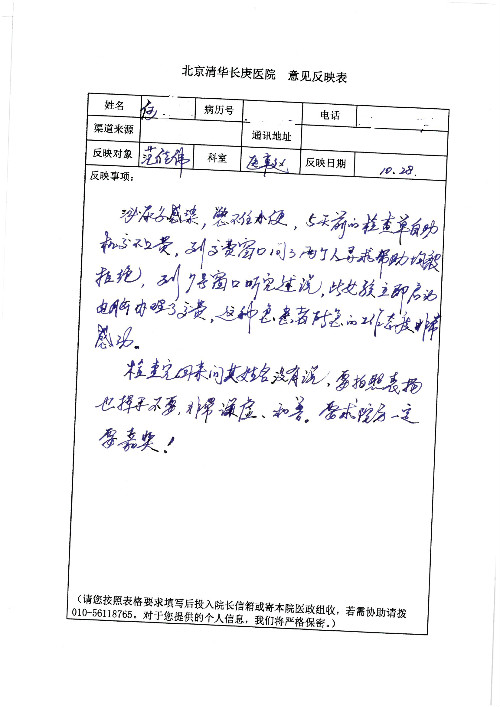 北京清华长庚医院 意见反映表
姓名 病历号 电话
渠道来源 通讯地址
反映对象 范 科室 反映日期 10.28.
反映事项：
泌尿系感染，憋不住小便，5天前的检查单自助
机交不上费，到交费窗口问了两个人寻求帮助均被
拒绝，到7号窗口听完述说，此女孩立即启动
电脑办理了交费，这种急患者所急的工作态度非常
感动。
检查完回来问其姓名没有说，要拍照表扬
也挥手不要，非常谦虚、和善。要求院方一定
要嘉奖！
（请您按照表格要求填写后投入院长信箱或寄本院医政组收，若需协助请拨
010-56118765。对于您提供的个人信息，我们将严格保密。）